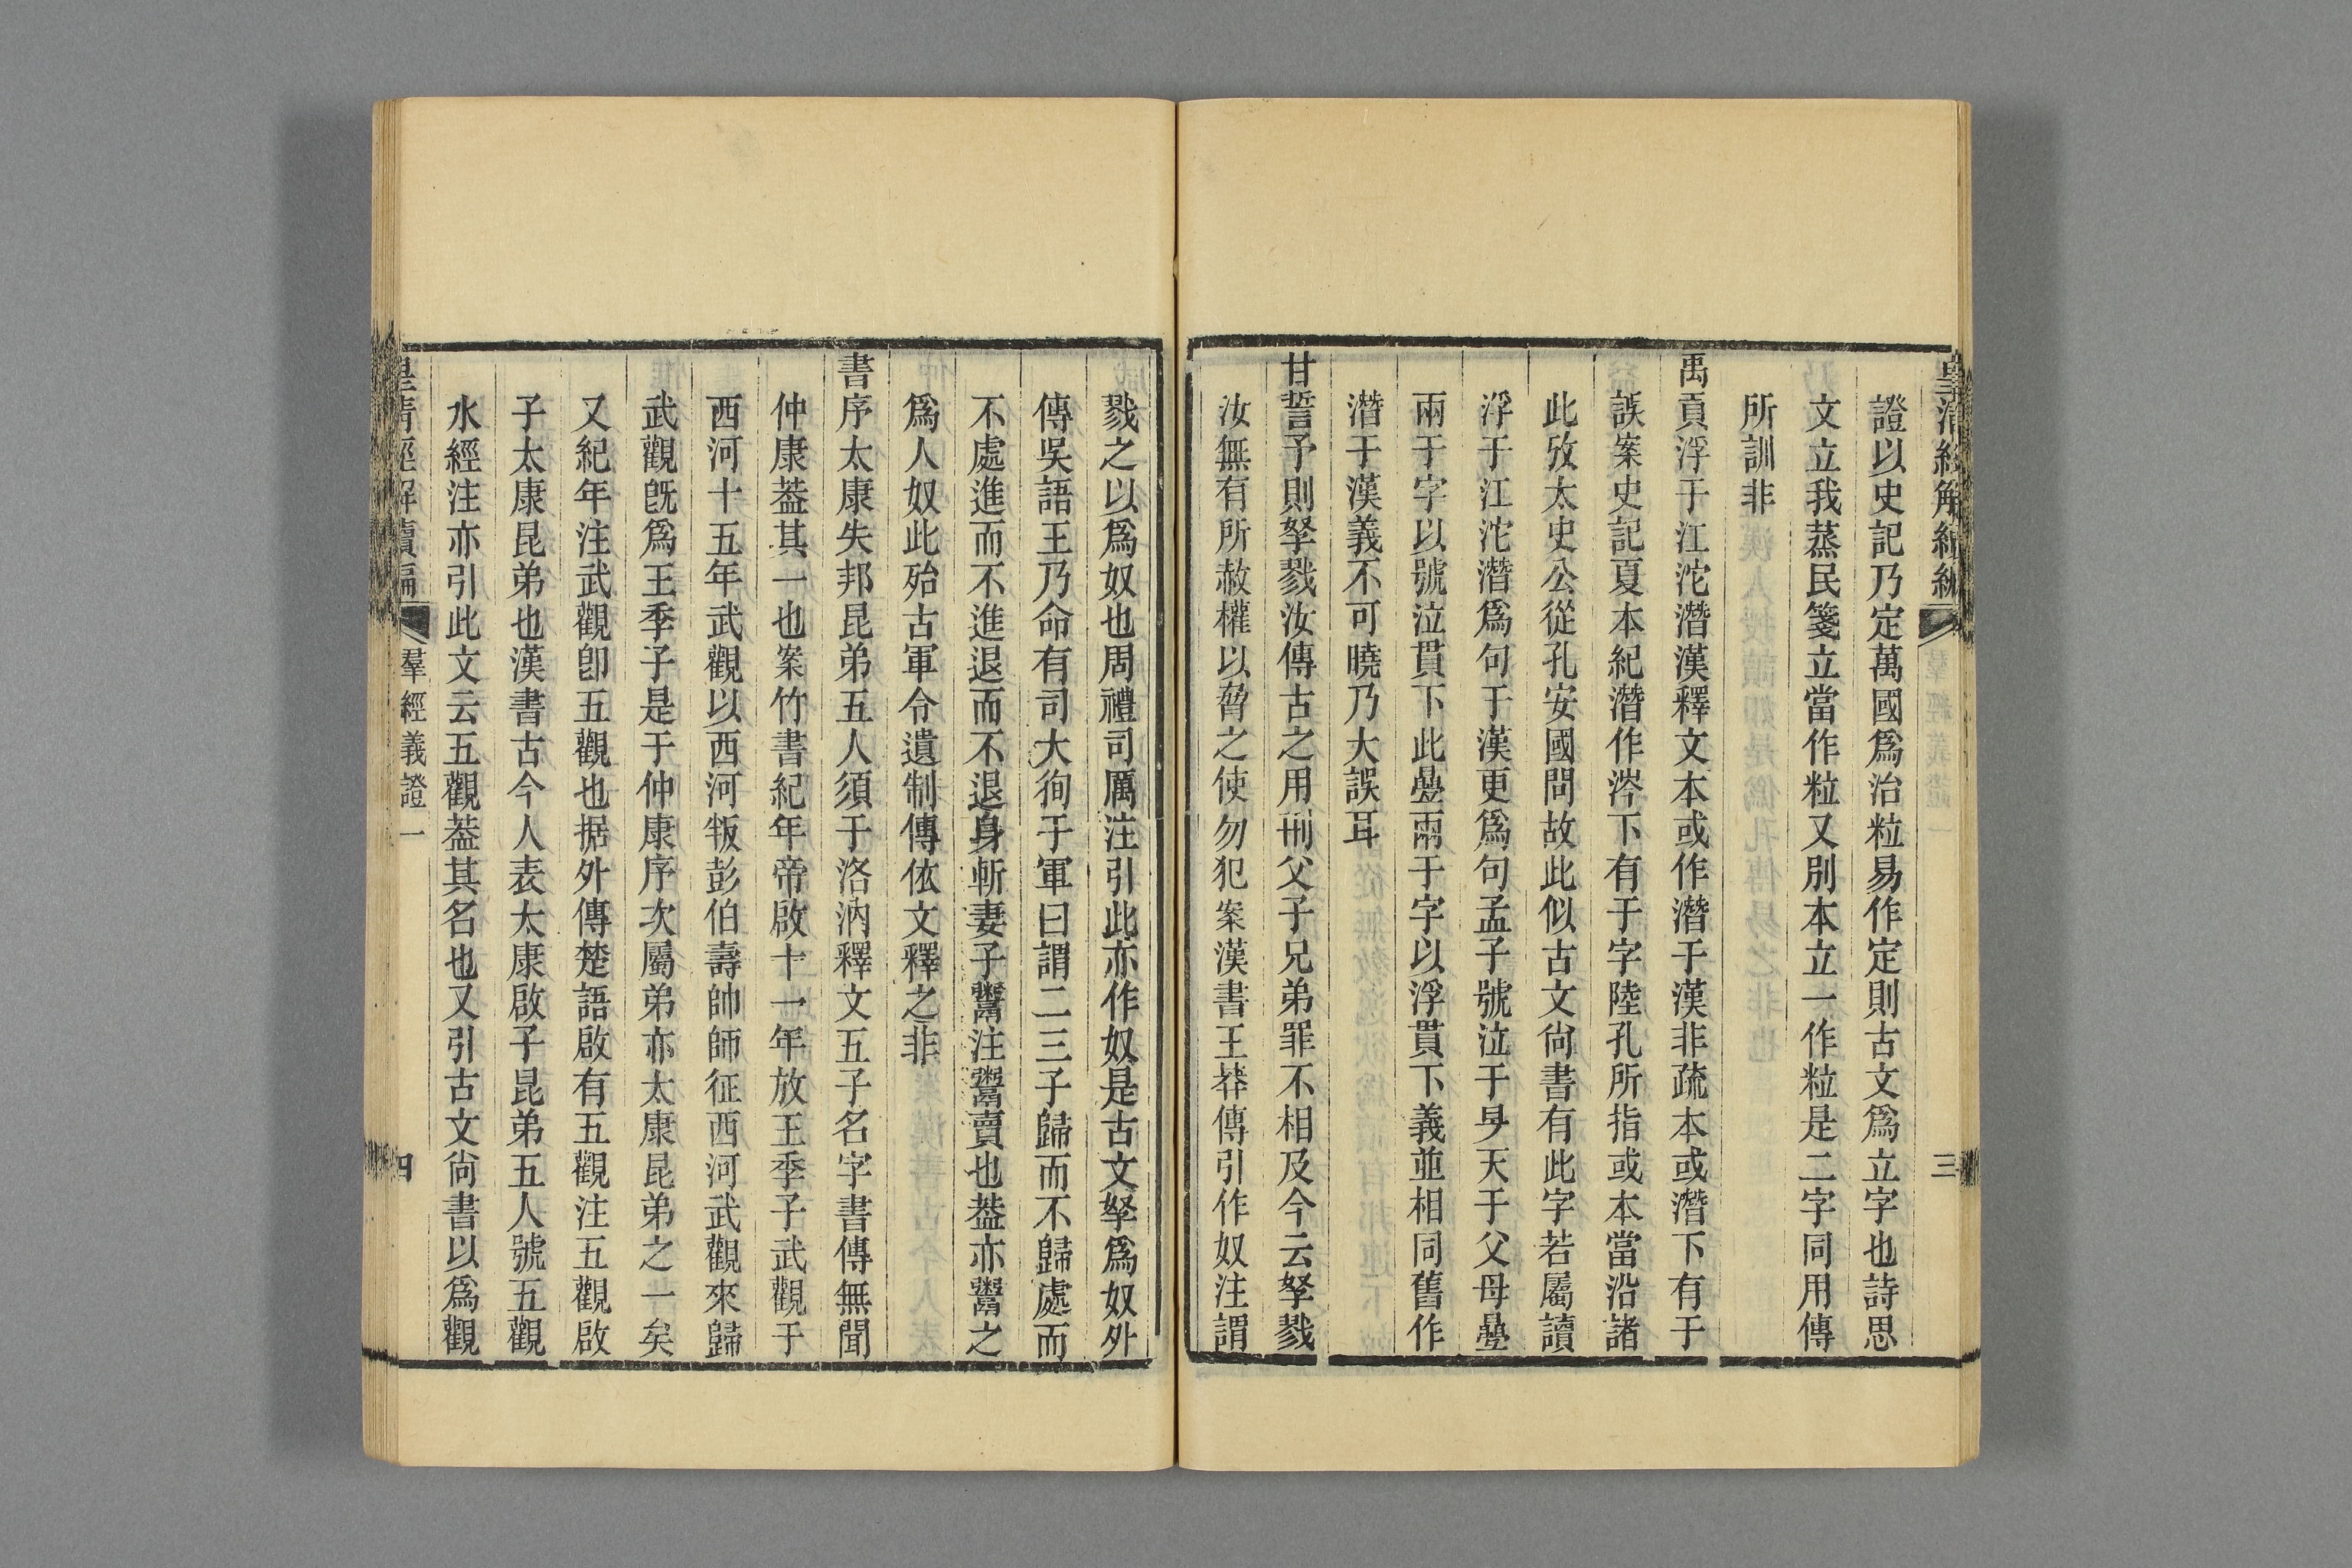 證以史記乃定萬國爲治粒易作定則古文爲立字也詩思
文立我蒸民箋立當作粒又別本立一作粒是二字同用傳
所訓非
禹貢浮于江沱潛漢釋文本或作潛于漢非疏本或潛下有于
誤案史記夏本紀潛作涔下有于字陸孔所指或本當沿諸
此攷太史公從孔安國問故此似古文尚書有此字若屬讀
浮于江沱潛爲句于漢更爲句孟子號泣于旻天于父母疊
兩于字以號泣貫下此疊兩于字以浮貫下義並相同舊作
潛于漢義不可曉乃大誤耳
甘誓予則孥戮汝傳古之用刑父子兄弟罪不相及今云孥戮
汝無有所赦權以脅之使勿犯案漢書王莽傳引作奴注謂
三
戮之以爲奴也周禮司厲注引此亦作奴是古文孥爲奴外
傳吳語王乃命有司大徇于軍曰謂二三子歸而不歸處而
不處進而不進退而不退身斬妻子鬻注鬻賣也葢亦鬻之
爲人奴此殆古軍令遺制傳依文釋之非
書序太康失邦昆弟五人須于洛汭釋文五子名字書傳無聞
仲康葢其一也案竹書紀年帝啟十一年放王季子武觀于
西河十五年武觀以西河叛彭伯壽帥師征西河武觀來歸
武觀既爲王季子是于仲康序次屬弟亦太康昆弟之一矣
又紀年注武觀卽五觀也据外傳楚語啟有五觀注五觀啟
子太康昆弟也漢書古今人表太康啟子昆弟五人號五觀
水經注亦引此文云五觀葢其名也又引古文尚書以爲觀
皇清經解續編
羣經義證一
四